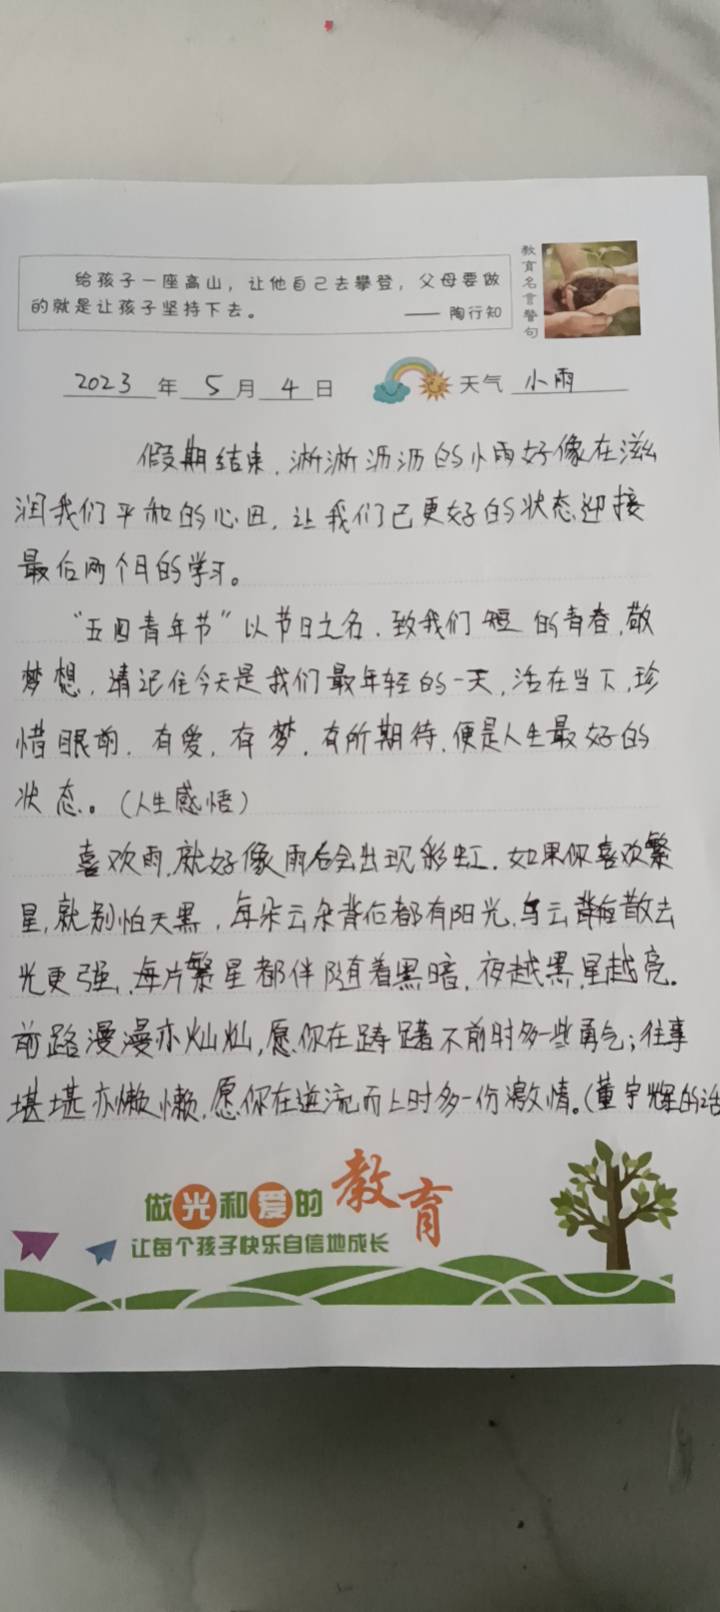 给孩子一座高山，让他自己去攀登，父母要做
的就是让孩子坚持下去。
—— 陶行知
教育名言警句
2023年5月4日 天气 小雨
假期结束，淅淅沥沥的小雨好像在滋
润我们平和的心田，让我们已更好的状态迎接
最后两个月的学习。
“五四青年节”以节日之名，致我们短的青春，敬
梦想，请记住今天是我们最年轻的一天，活在当下，珍
惜眼前，有爱，有梦，有所期待，便是人生最好的
状态。（人生感悟）
喜欢雨，就好像雨后会出现彩虹，如果你喜欢繁
星，就别怕天黑，每朵云朵背后都有阳光，乌云散去
光更强，每片繁星都伴随着黑暗，夜越黑，星越亮。
前路漫漫亦灿灿，愿你在踌躇不前时多一些勇气；往事
堪堪亦懒懒，愿你在逆流而上时多一份激情。（董宇辉的话
做光和爱的教育
让每个孩子快乐自信地成长